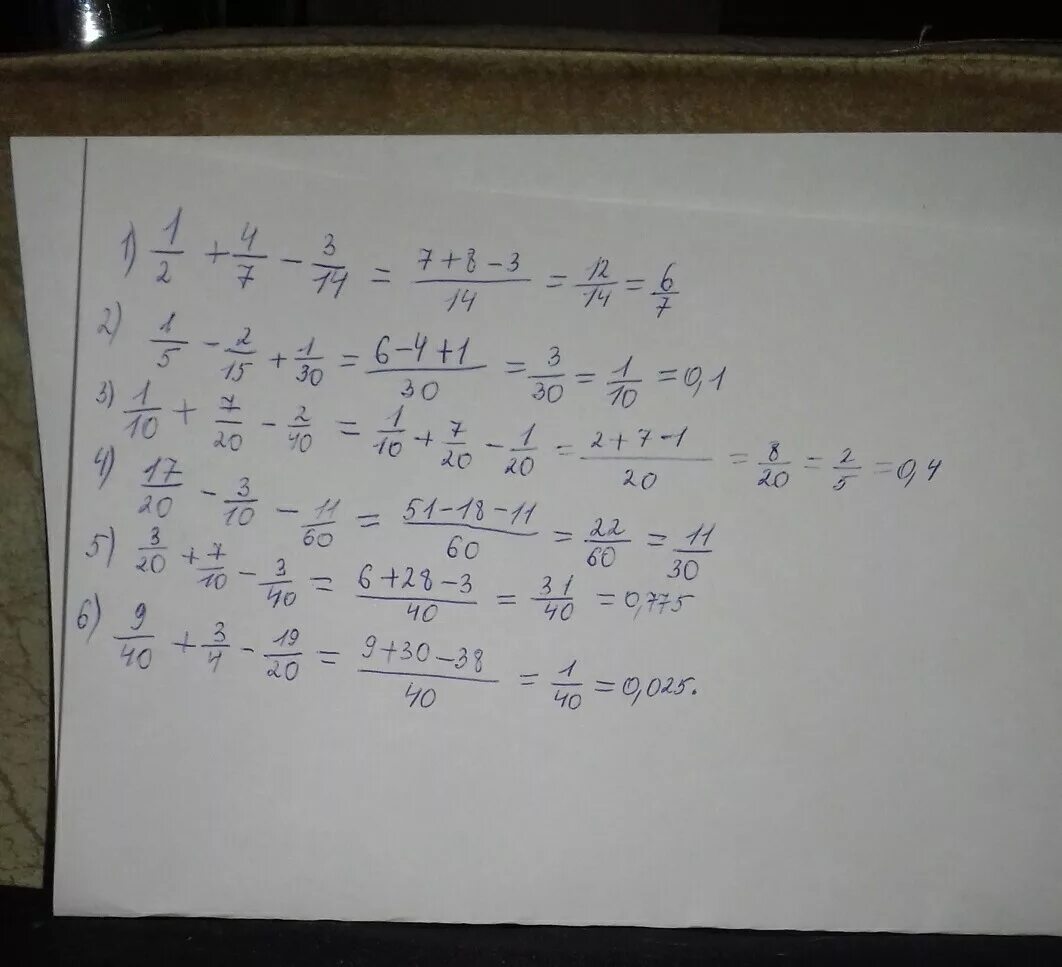 1) 1/2 + 4/7 - 3/14 = (7+8-3)/14 = 12/14 = 6/7
2) 1/5 - 2/15 + 1/30 = (6-4+1)/30 = 3/30 = 1/10 = 0,1
3) 1/10 + 7/20 - 2/40 = 1/10 + 7/20 - 1/20 = (2+7-1)/20 = 8/20 = 2/5 = 0,4
4) 17/20 - 3/10 - 11/60 = (51-18-11)/60 = 22/60 = 11/30
5) 3/20 + 7/10 - 3/40 = (6+28-3)/40 = 31/40 = 0,775
6) 9/40 + 3/4 - 19/20 = (9+30-38)/40 = 1/40 = 0,025.